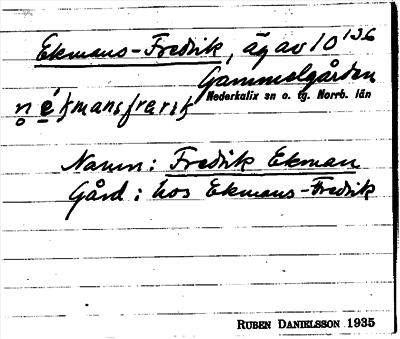 Ekmans-Fredrik, äg av 10 136
Gammelgården
Nederkalix sn o. tg. Norrb. län
Namn: Fredrik Ekman
Gård: hos Ekmans-Fredrik
RUBEN DANIELSSON 1935